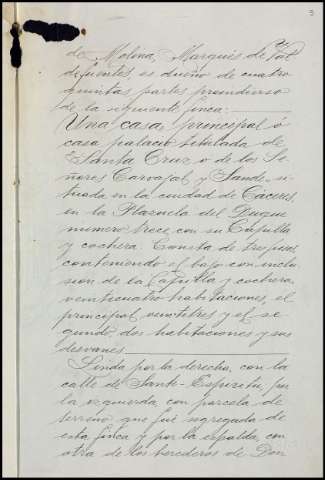 3
de Molina, Marqués de Val-
difuentes, es dueño de cuatro
quintas partes proindiviso
de la siguiente finca:
Una casa principal ó
casa palacio titulada de
Santa Cruz o de los Se-
ñores Carvajal y Sande, si-
tuada en la ciudad de Cáceres,
en la Plazuela del Duque
numero trece, con su Capilla
y cochera. Consta de tres pisos,
conteniendo el bajo con inclu-
sion de la Capilla y cochera,
veinticuatro habitaciones, el
principal veintitres y el se-
gundo dos habitaciones y sus
desvanes
Linda por la derecha, con la
calle de Santi-Espiritu, por
la izquierda, con parcela de
terreno que fué segregada de
esta finca y por la espalda, con
otra de los herederos de Don